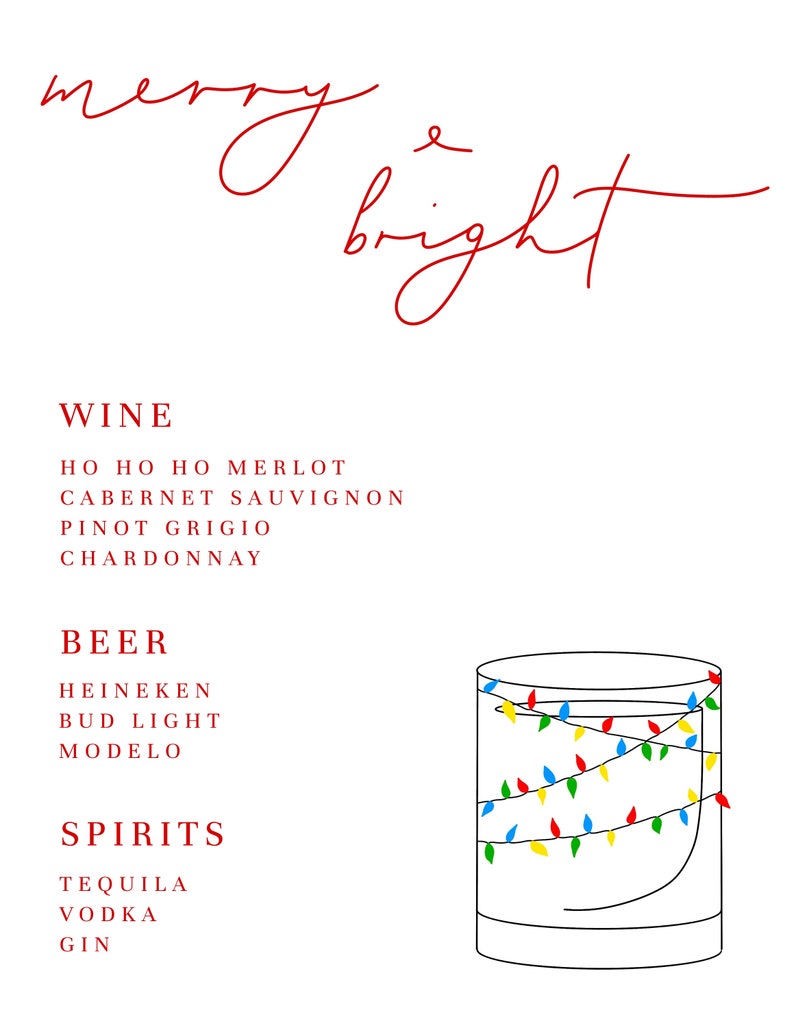 merry
e
bright
WINE
HO HO HO MERLOT
CABERNET SAUVIGNON
PINOT GRIGIO
CHARDONNAY
BEER
HEINEKEN
BUD LIGHT
MODELO
SPIRITS
TEQUILA
VODKA
GIN